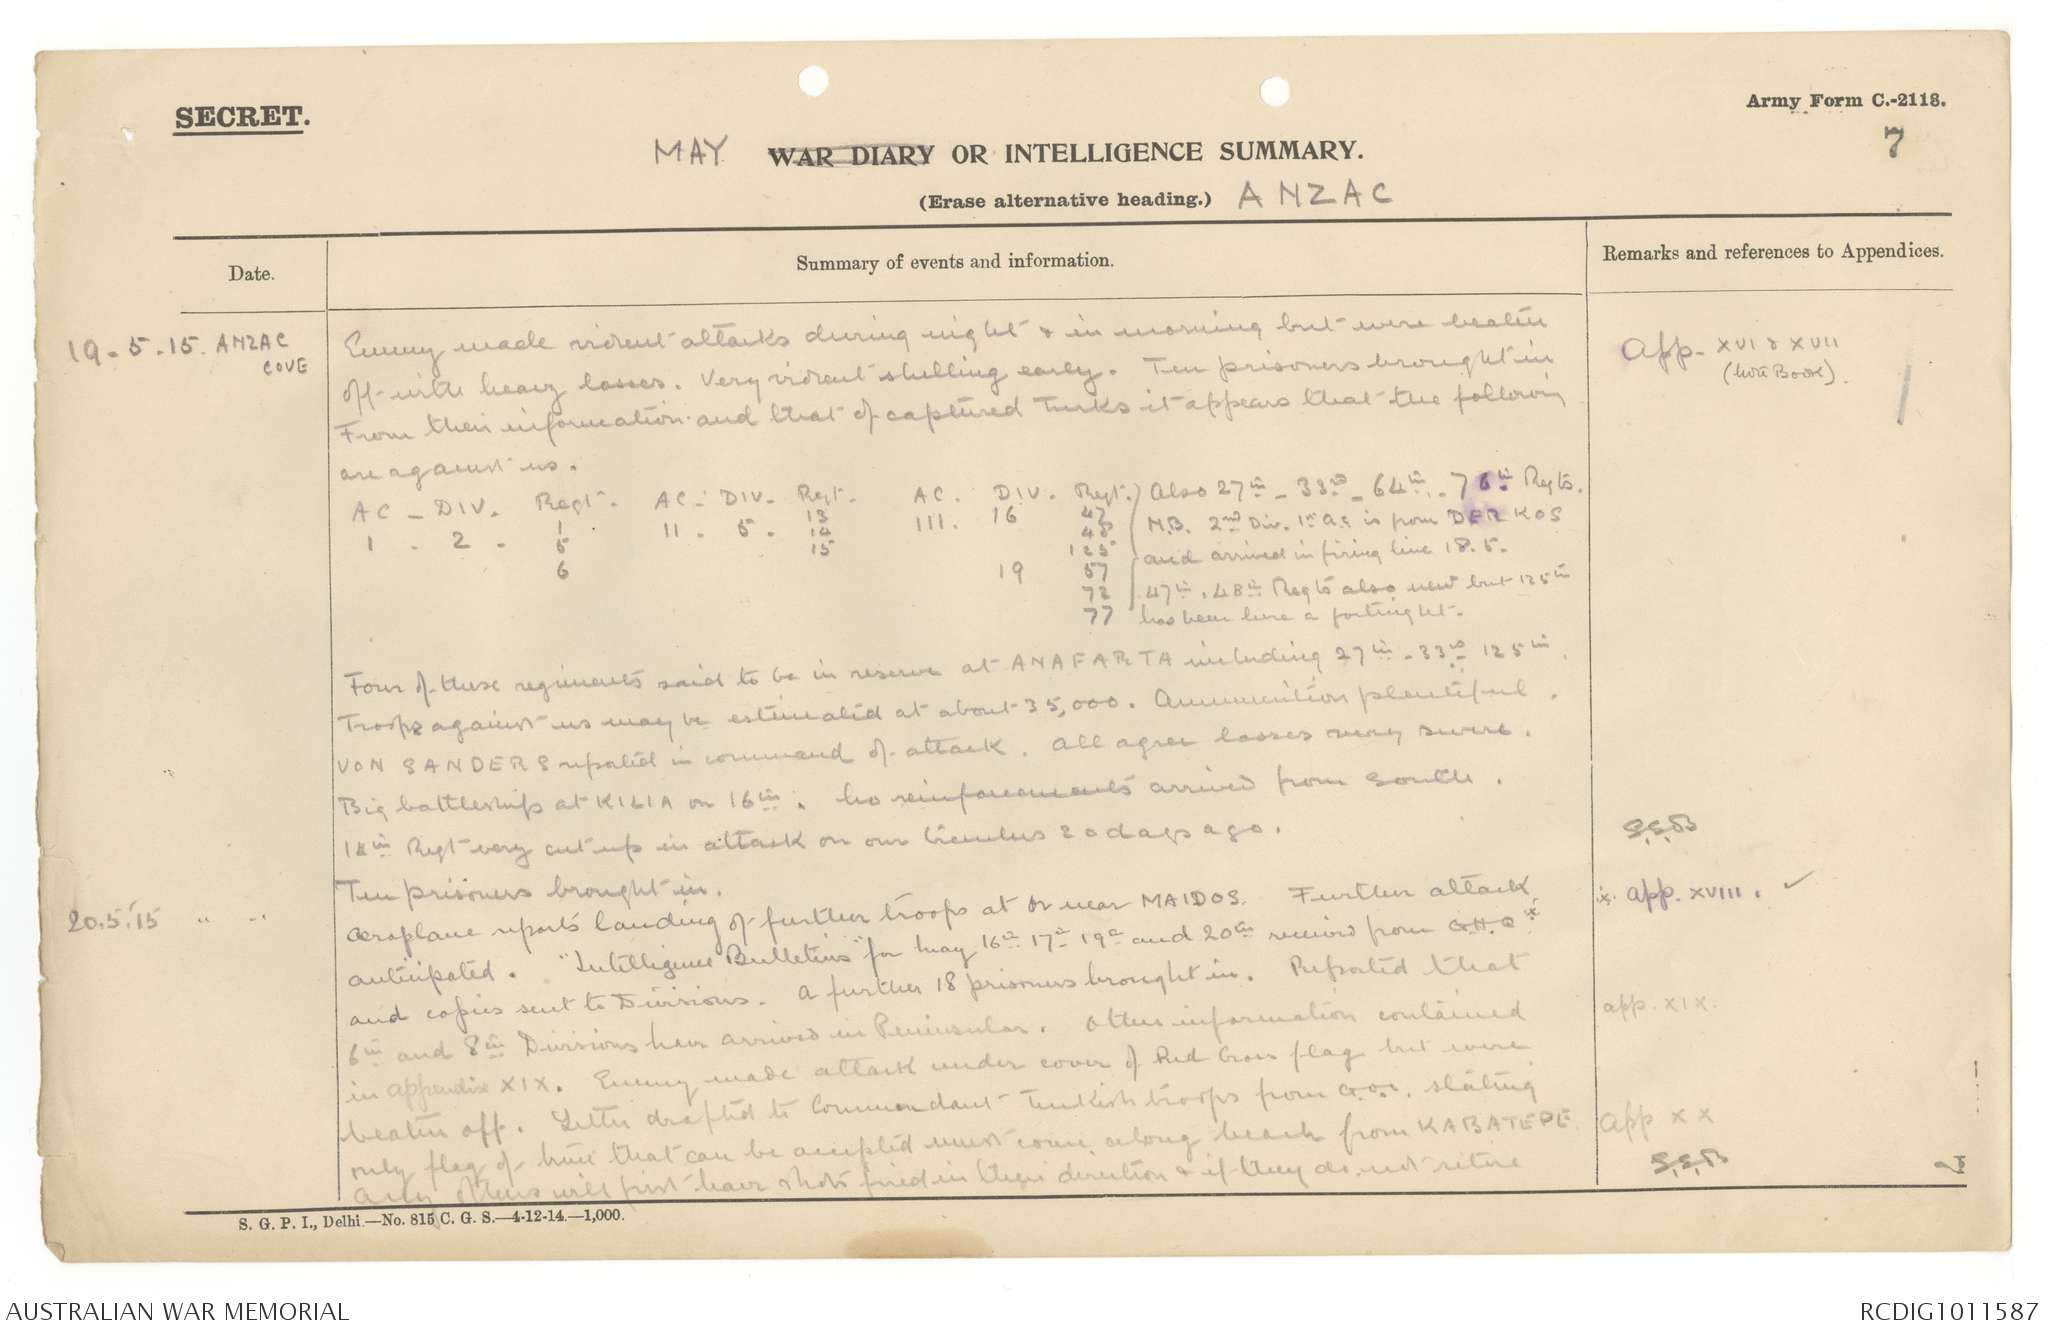 SECRET.
Army Form C.-2118.
7
MAY WAR DIARY OR INTELLIGENCE SUMMARY.
(Erase alternative heading.) ANZAC
Date.
Summary of events and information.
Remarks and references to Appendices.
19.5.15. ANZAC COVE
Enemy made violent attacks during night & in morning but were beaten
off with heavy losses. Very violent shelling early. Ten prisoners brought in
From their information and that of captured Turks it appears that the following
are against us.
App. XVI & XVII
(Note Book).
AC - DIV. Regt. AC - DIV. Regt. AC. DIV. Regt.
1 . 2 . 1 II . 5 . 13 III. 16 47
5 14 48
6 15 125
19 57
72
77
Also 27th - 33rd - 64th - 76th Regts.
N.B. 2nd Div. 1st A.C. is from DERKOS
and arrived in firing line 18.5.
47th, 48th Regts also new but 125th
has been here a fortnight.
Four of these regiments said to be in reserve at ANAFARTA including 27th - 33rd 125th.
Troops against us may be estimated at about 35,000. Ammunition plentiful.
VON SANDERS reported in command of attack. All agree losses very severe.
Big battleship at KILIA on 16th. No reinforcements arrived from South.
Regt very cut up in attack on our trenches 20 days ago.
S.S.B
Ten prisoners brought in.
20.5.15 " "
Aeroplane reports landing of further troops at or near MAIDOS. Further attack
anticipated. "Intelligence Bulletins" for May 16th 17th 19th and 20th received from G.H.Q
and copies sent to Divisions. A further 18 prisoners brought in. Reported that
6th and 8th Divisions have arrived in Peninsular. Other information contained
in appendix XIX. Enemy made attack under cover of Red Cross flag but were
beaten off. Letter drafted to Commandant Turkish troops from G.O.C. stating
only flag of truce that can be accepted must come along beach from KABATEPE.
Any others will first have shots fired in their direction & if they do not retire
App. XVIII.
app. XIX.
App XX
S.S.B
S. G. P. I., Delhi.—No. 815 C. G. S.—4-12-14.—1,000.
AUSTRALIAN WAR MEMORIAL
RCDIG1011587